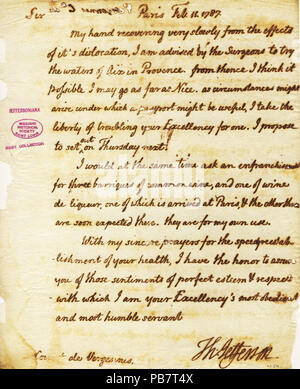 Sir Paris Feb. 11. 1787.
My hand recovering very slowly from the effects
of it's dislocation, I am advised by the Surgeons to try
the waters of Aix in Provence. from thence I think it
possible I may go as far as Nice. as circumstances might
arise under which a passport might be useful, I take the
liberty of troubling your Excellency for one. I propose
to set out on Thursday next.
I would at the same time ask an enfranchise
for three barriques of common wine, and one of wine
de liqueur, one of which is arrived at Paris & the others
are soon expected there. they are for my own use.
With my sincere prayers for the speedy reestab-
lishment of your health, I have the honor to assure
you of those sentiments of perfect esteem & respect
with which I am your Excellency's most obedient
and most humble servant
Th: Jefferson
Count de Vergennes.
JEFFERSONIANA
MISSOURI
HISTORICAL
SOCIETY
SAINT LOUIS
BIXBY COLLECTION
alamy stock photo
PB7T4X